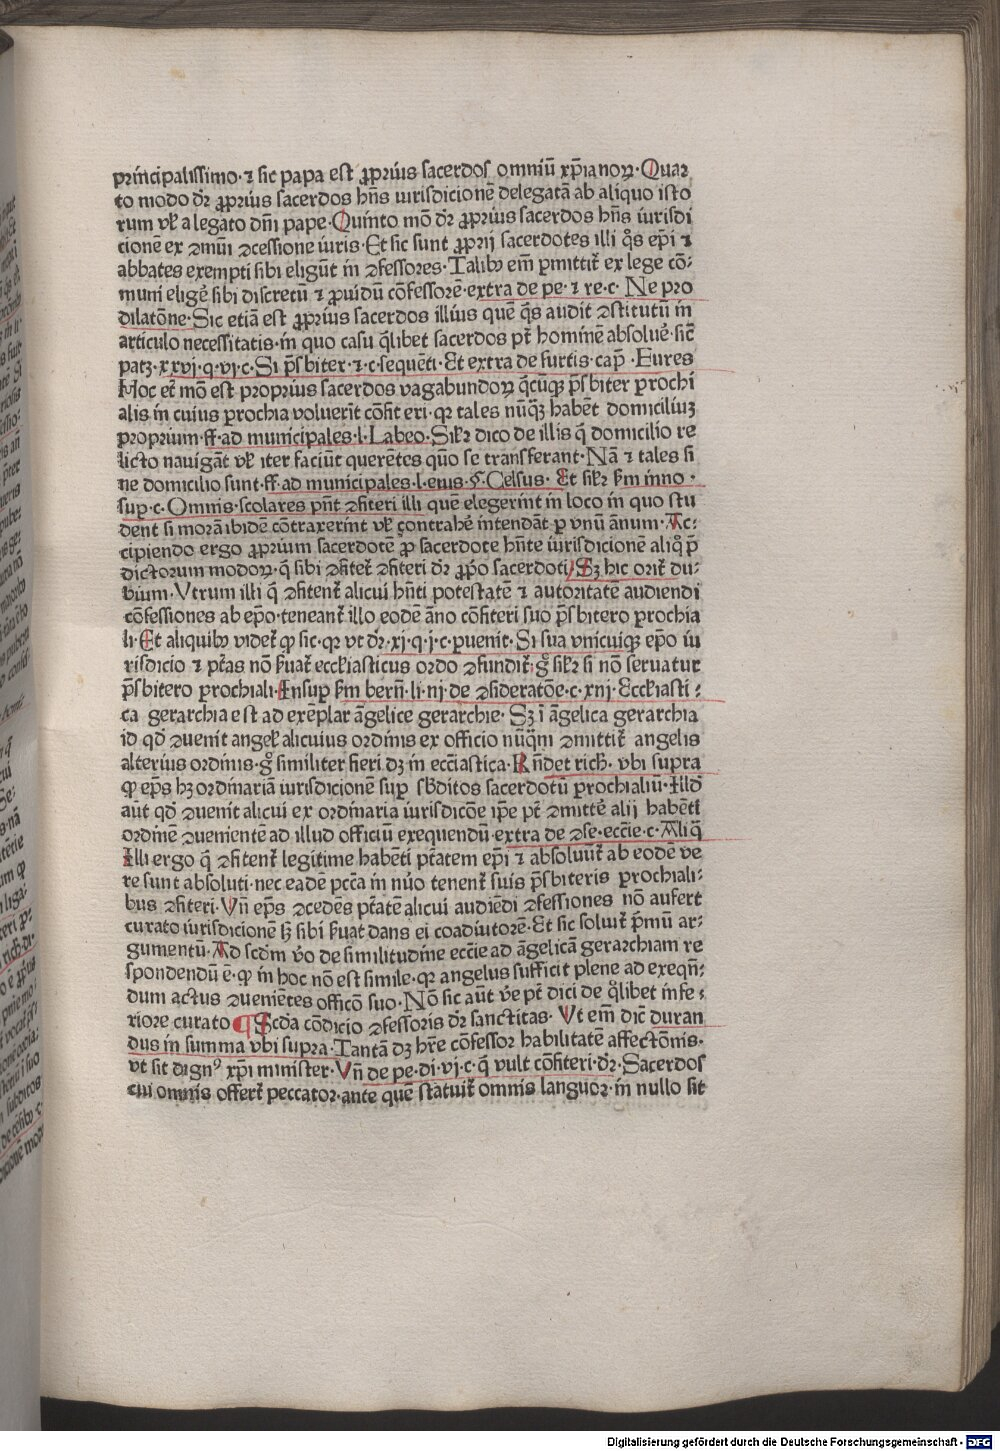 principalissimo· ⁊ sic papa est ꝓprius sacerdos omniū xp̄ianoꝝ· Quar
to modo dr̄ ꝓprius sacerdos hn̄s iurisdicionē delegatā ab aliquo isto
rum vl̓ a legato dn̄i pape· Quinto mō dr̄ ꝓprius sacerdos hn̄s iurisdi
cionē ex ꝯmuni ꝯcessione iuris· Et sic sunt ꝓprij sacerdotes illi q̊s ep̄i ⁊
abbates exempti sibi eligūt in ꝯfessores· Talibꝰ em̄ ꝑmittit̄ ex lege cō⸗
muni elige̓ sibi discretū ⁊ ꝓuidū cōfessorē· extra de pe· ⁊ re· c· Ne pro
dilatōne· Sic etiā est ꝓprius sacerdos illius quē q̄s audit ꝯstitutū in
articulo necessitatis· in quo casu q̄libet sacerdos pt̄ hominē absolue̓· sic̄
patꝫ· xxvj· q· vj· c· Si p̄sbiter· ⁊· c· sequēti· Et extra de furtis· cap̄· Fures
Hoc et̄ mō est proprius sacerdos vagabundoꝝ q̄cūqꝫ p̄sbiter ꝑrochi
alis in cuius ꝑrochia voluerīt cōfiteri· qꝛ tales nūq̄ꝫ habēt domiciliuꝫ
proprium· ff· ad municipales· l· Labeo· Silr̄ dico de illis q̄ domicilio re
licto nauigāt vl̓ iter faciūt querētes quo se transferant· Nā ⁊ tales si
ne domicilio sunt· ff· ad municipales· l· eius· §· Celsus· Et silr̄ ẜm inno·
suꝑ· c· Omnis· scolares pn̄t ꝯfiteri illi quē elegerint in loco in quo stu
dent si morā ibidē cōtraxerint vl̓ contrahe̓ intendāt ꝑ vnū annum· Ac⸗
cipiendo ergo ꝓprium sacerdotē ꝓ sacerdote hn̄te iurisdicionē aliq̊ p̄
dictorum modoꝝ· q̄ sibi ꝯfitet̄ ꝯfiteri dr̄ ꝓpō sacerdoti/ Sꝫ hic orit̄ du⸗
bium· Vtrum illi q̄ ꝯfitent̄ alicui hn̄ti potestatē ⁊ autoritatē audiendi
cōfessiones ab ep̄o· teneant̄ illo eodē āno cōfiteri suo p̄sbitero ꝑrochia
li· Et aliquibꝰ videt̄ ꝙ sic· qꝛ vt dr̄· xj· q· j· c· ꝑuenit· Si sua vnicuiqꝫ ep̄o iu
risdicio ⁊ pt̄as nō ẜuat̄ eccl̓iasticus ordo ꝯfundit̄· g̊ silr̄ si nō seruatur
p̄sbitero ꝑrochiali· Insuꝑ ẜm bern̄· li· nj· de ꝯsideratōe· c· xnj· Eccl̓iasti⸗
ca gerarchia est ad exēplar āgelice gerarchie· Sꝫ ī āgelica gerarchia
id qd̓ ꝯuenit angel̓ alicuius ordinis ex officio nūq̄m ꝯmittit̄ angelis
alterius ordinis· g̊ similiter fieri dꝫ in ecc̄iastica· Rn̄det rich̄· vbi supra
ꝙ ep̄s hꝫ ordinariā iurisdicionē suꝑ sb̓ditos sacerdotū ꝑrochialiū· Illd̓
aūt qd̓ ꝯuenit alicui ex ordinaria iurisdicōe ip̄e pt̄ ꝯmitte̓ alij habēti
ordinē ꝯuenientē ad illud officiū exequendū· extra de ꝯse· ecc̄ie· c· Aliq̄
Illi ergo q̄ ꝯfitent̄ legitime habēti pt̄atem ep̄i ⁊ absoluūt̄ ab eodē ve
re sunt absoluti· nec eadē pcc̄a in nūo tenent̄ suis p̄sbiteris ꝑrochiali⸗
bus ꝯfiteri· Vn̄ ep̄s ꝯcedēs pt̄atē alicui audiēdi ꝯfessiones nō aufert
curato iurisdicionē sꝫ sibi ẜuat dans ei coadiutorē· Et sic soluit̄ p̄mū ar⸗
gumentū· Ad scd̓m v̊o de similitudine ecc̄ie ad āgelicā gerarchiam re
spondendū ē· ꝙ in hoc nō est simile· qꝛ angelus sufficit plene ad exeqn̄⸗
dum actus ꝯueniētes officō suo· Nō sic aūt v̓e pt̄ dici de q̊libet infe⸗
riore curato ¶ Scd̓a cōdicio ꝯfessoris dr̄ sanctitas· Vt em̄ dic̄ duran
dus in summa vbi supra· Tantā dꝫ hr̄e cōfessor habilitatē affectōnis·
vt sit dignꝰ xp̄i minister· Vn̄ de pe· di· vj· c· q̄ vult cōfiteri· dr̄· Sacerdos
cui omnis offert̄ peccator· ante quē statuit̄ omnis languor· in nullo sit
Digitalisierung gefördert durch die Deutsche Forschungsgemeinschaft - DFG